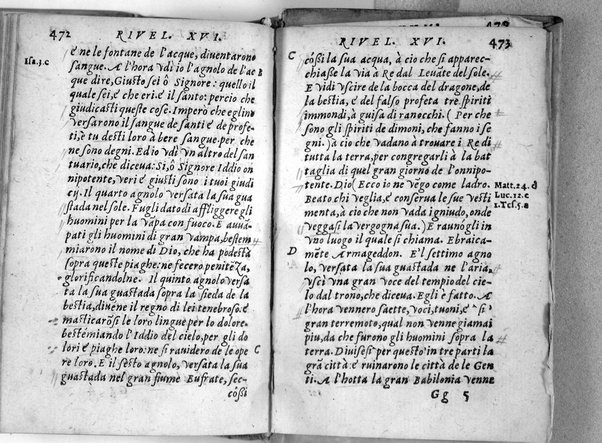 472 RIVEL. XVI.
Isa.3.c
é ne le fontane de l'acque, diuentarono
sangue. A l'hora vdi io l'agnolo de l'ac B
que dire, Giusto sei ô Signore: quello il
quale sei, é che eri: é il santo: percio che
giudicasti queste cose. Imperò che eglino
versarono il sangue de santi é de profe-
ti, è tu desti loro à bere sangue. per che
ne sono degni. Ed io vdi vn altro del san
tuario, che diceua: Si, ô Signore Iddio on
nipotente, veri é giusti sono i tuoi giudi
cij. Il quarto agnolo versata la sua gua
stada nel sole. Fugli dato di affliggere gli
huomini per la vampa con fuoco. E auuā
pati gli huomini di gran vampa, bestem
miarono il nome di Dio, che ha podestà
sopra queste piaghe: ne fecero penitēza,
glorificandolne. Il quinto agnolo versa
ta la sua guastada sopra la sieda de la
bestia, diuene il regno di lei tenebroso. é
masticarōsi le loro lingue per lo dolore.
bestēmiando l'Iddio del cielo, per gli do
lori é piaghe loro: ne si rauidero de le ope
re loro. E il sesto agnolo, versata la sua C
guastada nel gran fiume Eufrate, sec-
cōssi
RIVEL. XVI. 473
C cōssi la sua acqua, à cio che si apparec-
chiasse la via à Re dal Leuāte del sole.
E vidi vscire de la bocca del dragone, de
la bestia, e del falso profeta tre spiriti
immondi, à guisa di ranocchi. (Per che
sono gli spiriti de dimoni, che fanno i se
gni.) à cio che vadano à trouare i Re di
tutta la terra, per congregarli à la bat
taglia di quel gran giorno de l'onnipo-
tente. Dio( Ecco io ne vēgo come ladro.
Matt.24.d
Beato chi veglia, é conserua le sue vesti
Luc.12.e
menta, à cio che non vada ignudo, onde
1.Tes.5.a
veggasi la vergogna sua.) E raunogli in
vno luogo il quale si chiama. Ebraica-
D mēte Armageddon. E'l settimo agno
lo, versata la sua guastada ne l'aria,
vsci vna gran voce del tempio del cie-
lo dal trono, che diceua. Egli è fatto. A
l'hora vennero saette, voci, tuoni, é si
gran terremoto, qual non venne giamai
piu, da che furono gli huomini sopra la
terra. Diuisesi per questo in tre parti la
grā città é ruinarono le città de le Gen
ti. A l'hotta la gran Babilonia venne
Gg 5